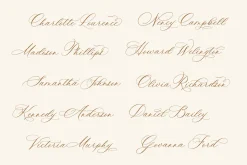 Charlotte Laurence
Nency Campbell
Madison Phillips
Howard Arlington
Samantha Johnson
Olivia Richardson
Kennedy Anderson
Daniel Bailey
Victoria Murphy
Giovanna Ford